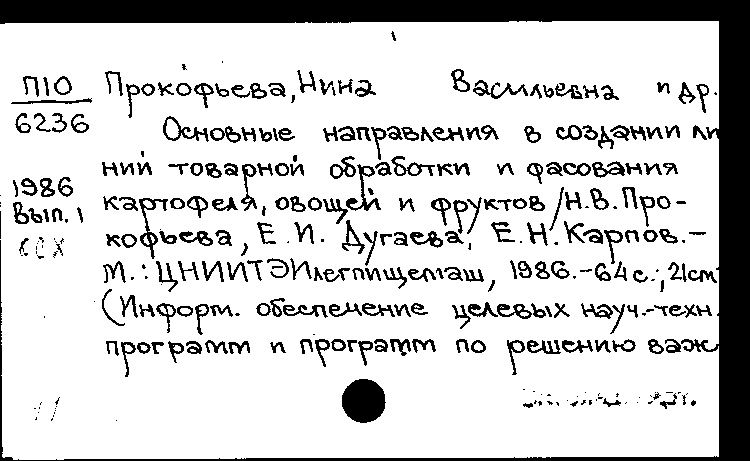 П10
6236
1986
Вып. 1
ССХ
Прокофьева, Нина Васильевна и др.
Основные направления в создании ли
ний товарной обработки и фасования
картофеля, овощей и фруктов /Н.В. Про-
кофьева, Е.И. Дугаева, Е.Н. Карпов.-
М.: ЦНИИТЭИлегпищемаш, 1986.-64 с.; 21см
(Информ. обеспечение целевых науч.-техн.
программ и программ по решению важ